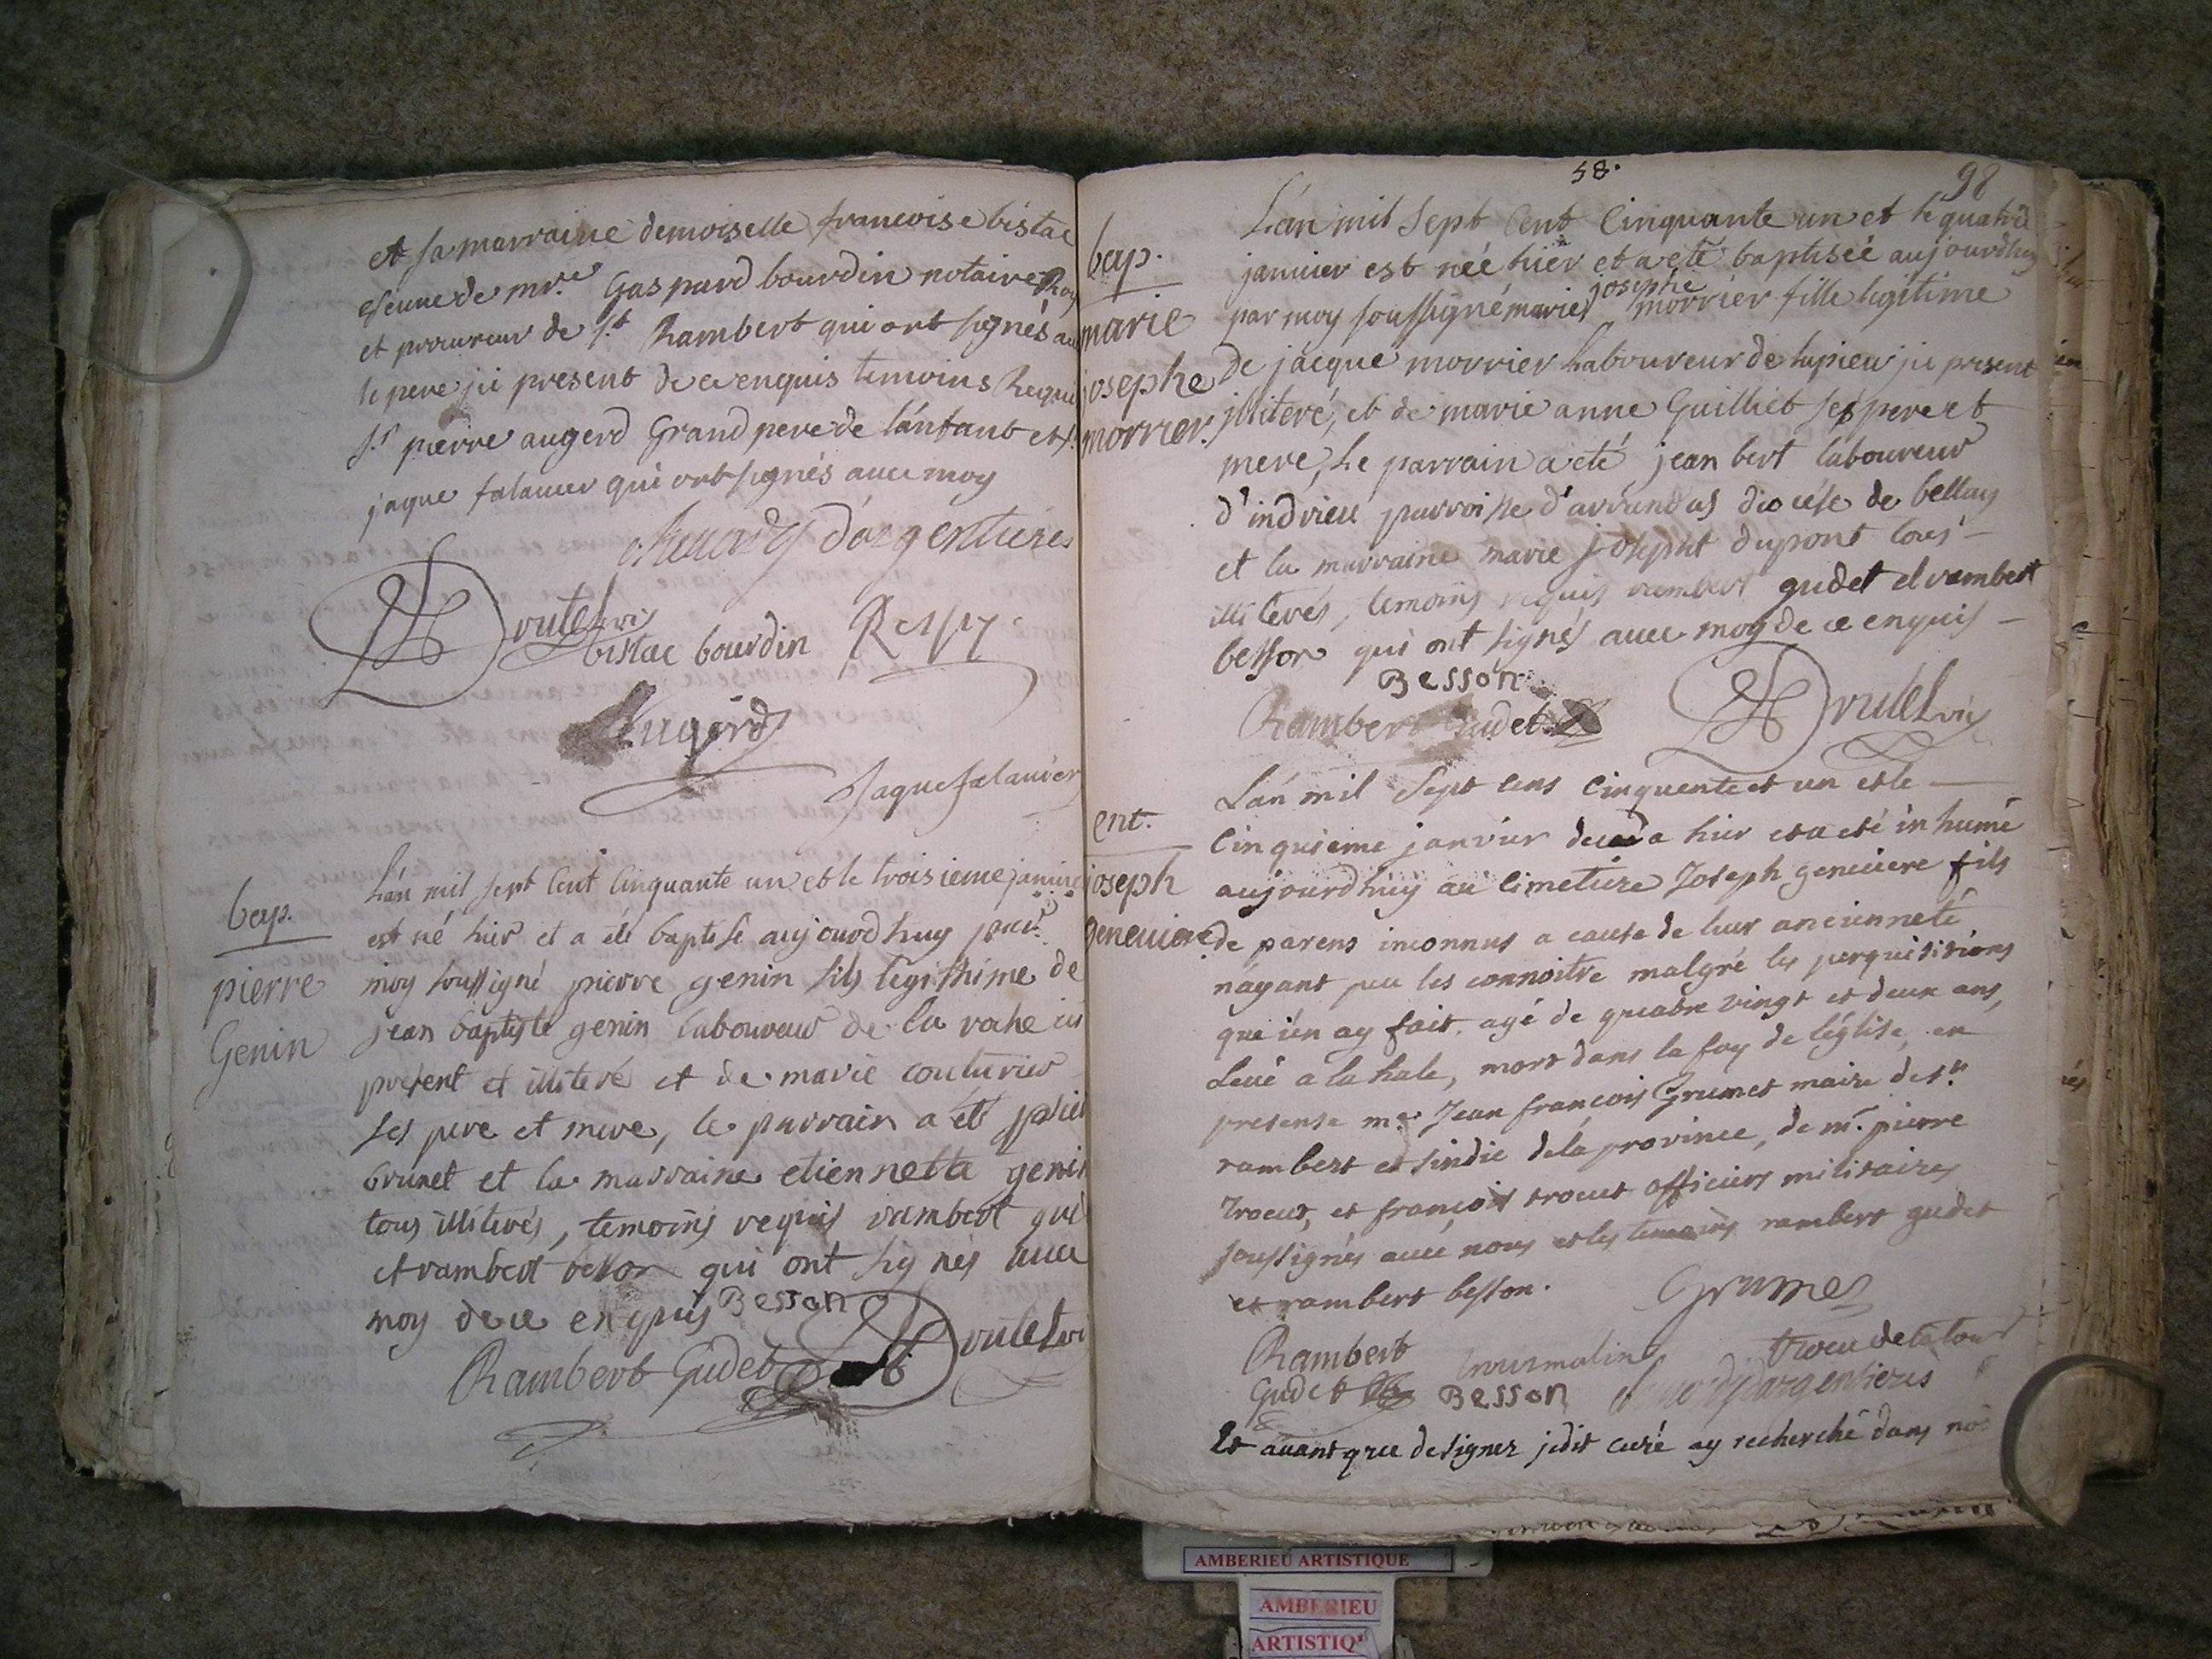 et sa marraine demoiselle francoise bistac
veuve de mre Gaspard bourdin notaire Roy
et procureur de st Rambert qui ont signés au
le pere ici present de ce enquis temoins Requi
sr pierre augerd Grand pere de lánfant et sr
jaque falavier qui ont signés avec moy
d'argentieres
Doutel vic
bistac bourdin
Augerd
Jaque falavier
bap.
pierre
Genin
Lán mil sept Cent Cinquante un et le troisieme janvier
est né hier et a été baptisé aujourdhuy par
moy soussigné pierre genin fils legithime de
jean baptiste genin laboureur de la roche ici
present et illiteré et de marie couturier
ses pere et mere, le parrain a eté
brunet et la marraine etiennette genin
tous illiterés, temoins requis rambert gud
et rambert besson qui ont signés avec
moy de ce enquis Besson
Rambert Gudet Doutel vi
58.
98
bap.
marie
josephe
morrier.
Lán mil Sept Cent Cinquante un et le quatre
janvier est neé hier et a eté baptiseé aujourdhuy
par moy soussigné marie josephe morrier fille legitime
de jacque morrier Laboureur de lupieu ici present
illiteré, et de marie anne Guilliet ses pere et
mere, Le parrain a eté jean bert laboureur
d'indrieu parroisse d'arrandas diocése de bellay
et la marraine marie josepht dupont tous
illiterés, temoins requis rambert gudet et rambert
besson qui ont signés avec moy de ce enquis
Besson
Rambert Gudet Doutel vic
ent.
joseph
geneviere
Lán mil Sept cens Cinquente et un et le
Cinquieme janvier deceda hier et a eté inhumé
aujourdhuy au cimetiere Joseph geneviere fils
de parens inconnus a cause de leur ancienneté
náyant peu les connoitre malgré les perquisitions
que i'én ay fait. agé de quatre vingt et deux ans,
Levé a la hale, mort dans la foy de léglise, en
presense mr Jean françois Grumet maire de st
rambert et sindic dela province, de mr. pierre
trocut, et françois trocut officiers militaires
soussignés avec nous et les temoins rambert gudet
et rambert besson.
Grumet
Rambert
trocu de la tour
Gudet Besson d'argentieres
Et avant que de signer jedit curé ay recherché dans nos
AMBERIEU ARTISTIQUE
AMBERIEU
ARTISTIQ